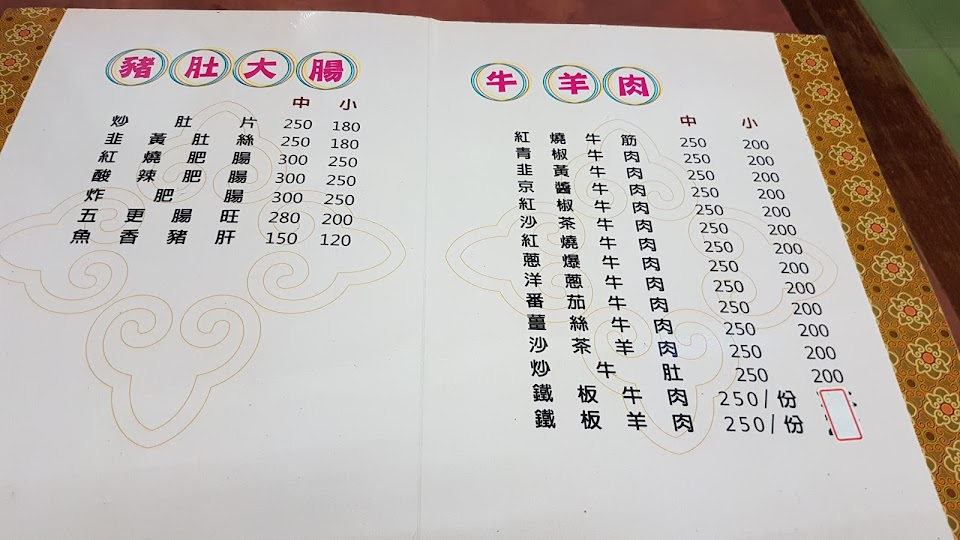 豬肚大腸
中 小
炒肚片 250 180
韭黃肚絲 250 180
紅燒肥腸 300 250
酸辣肥腸 300 250
炸肥腸 300 250
五更腸旺 280 200
魚香豬肝 150 120
牛羊肉
中 小
紅燒牛筋 250 200
青椒牛肉 250 200
韭黃牛肉 250 200
京醬牛肉 250 200
紅椒牛肉 250 200
沙茶牛肉 250 200
紅燒牛肉 250 200
蔥爆牛肉 250 200
洋蔥牛肉 250 200
番茄牛肉 250 200
薑絲牛肉 250 200
沙茶羊肉 250 200
炒牛肚 250 200
鐵板牛肉 250/份
鐵板羊肉 250/份